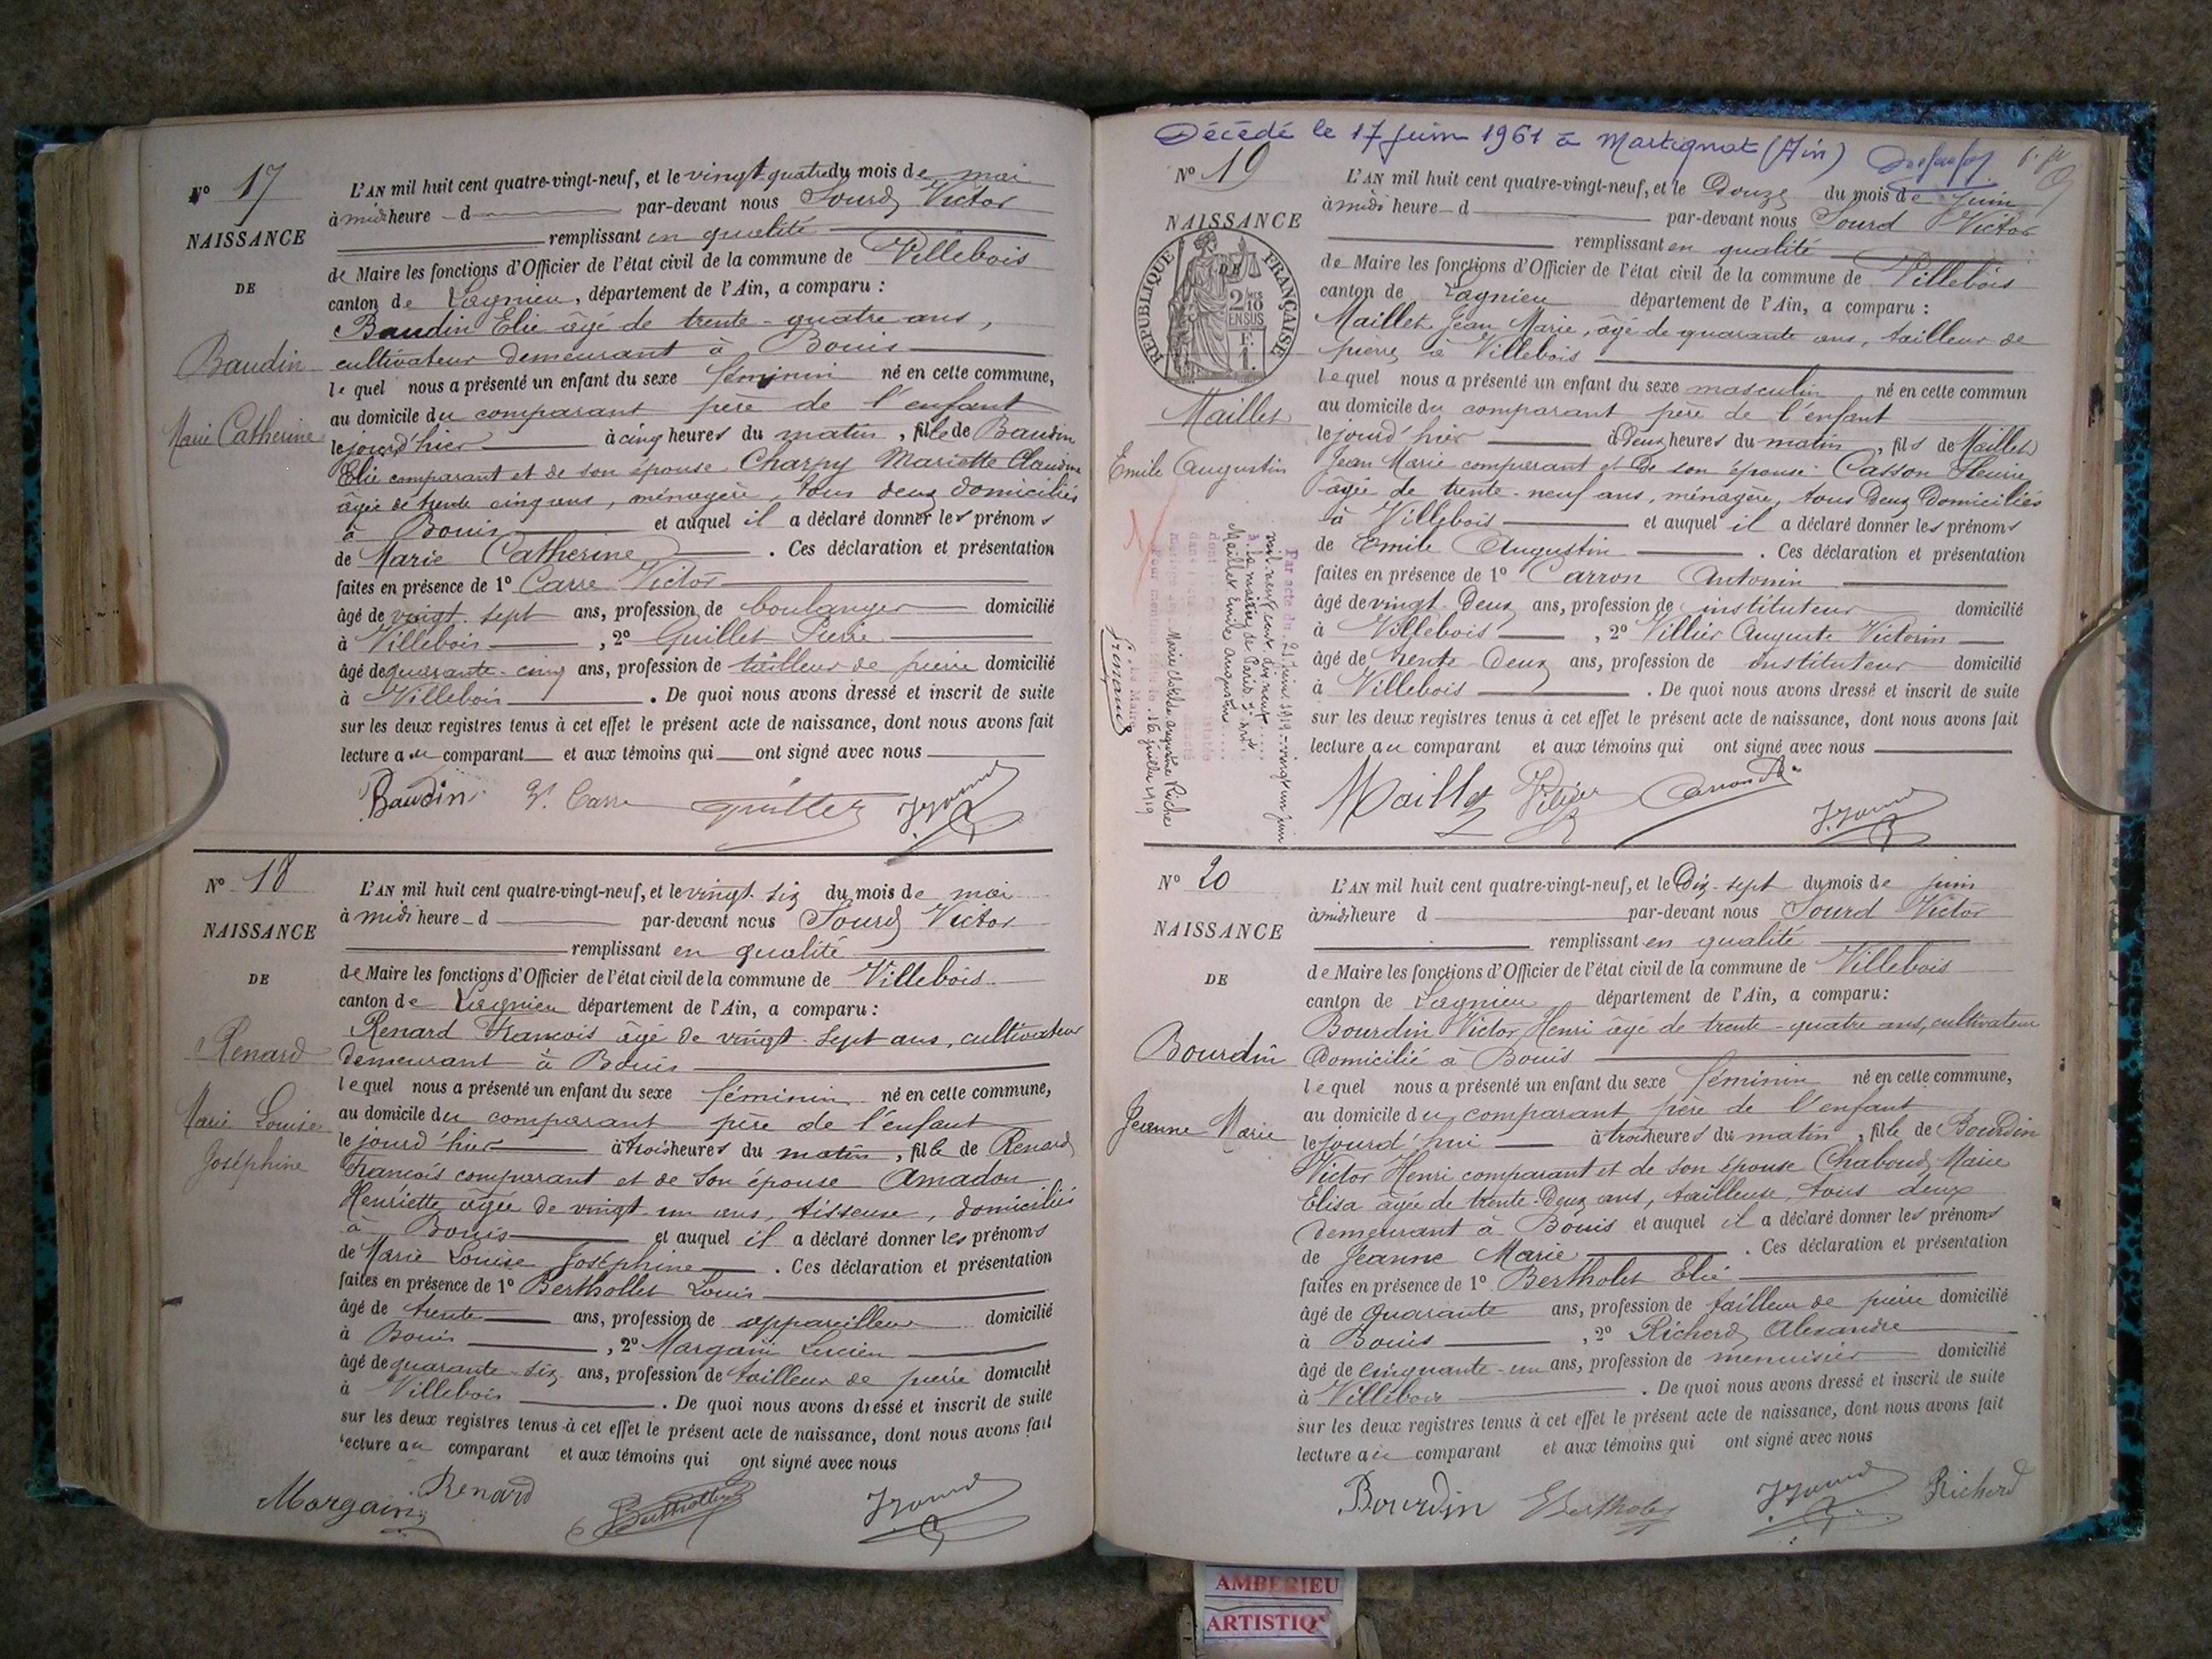 N° 17
NAISSANCE
DE
Baudin
Marie Catherine
L'AN mil huit cent quatre-vingt-neuf, et le vingt-quatre du mois de mai
à midi heure - d par-devant nous Sourd Victor
remplissant en qualité
de Maire les fonctions d'Officier de l'état civil de la commune de Villebois
canton de Lagnieu, département de l'Ain, a comparu :
Baudin Elie âgé de trente-quatre ans,
cultivateur demeurant à Bouis
lequel nous a présenté un enfant du sexe féminin né en cette commune,
au domicile du comparant père de l'enfant
le jourd'hier à cinq heures du matin, fille de Baudin
Elie comparant et de son épouse Charpy Mariette Claudine
âgée de trente cinq ans, ménagère, tous deux domiciliés
à Bouis et auquel il a déclaré donner les prénoms
de Marie Catherine . Ces déclaration et présentation
faites en présence de 1° Carre Victor
âgé de vingt-sept ans, profession de boulanger domicilié
à Villebois , 2° Guillet Pierre
âgé de quarante-cinq ans, profession de tailleur de pierre domicilié
à Villebois . De quoi nous avons dressé et inscrit de suite
sur les deux registres tenus à cet effet le présent acte de naissance, dont nous avons fait
lecture au comparant et aux témoins qui ont signé avec nous
Baudin V. Carre Guillet
N° 18
NAISSANCE
DE
Renard
Marie Louise
Joséphine
L'AN mil huit cent quatre-vingt-neuf, et le vingt-six du mois de mai
à midi heure - d par-devant nous Sourd Victor
remplissant en qualité
de Maire les fonctions d'Officier de l'état civil de la commune de Villebois
canton de Lagnieu département de l'Ain, a comparu :
Renard Francois âgé de vingt-sept ans, cultivateur
demeurant à Bouis
lequel nous a présenté un enfant du sexe féminin né en cette commune,
au domicile du comparant père de l'enfant
le jourd'hier à trois heures du matin, fille de Renard
Francois comparant et de son épouse Amadon
Henriette âgée de vingt-un ans, tisseuse, domiciliés
à Bouis et auquel il a déclaré donner les prénoms
de Marie Louise Joséphine . Ces déclaration et présentation
faites en présence de 1° Berthollet Louis
âgé de trente ans, profession de appareilleur domicilié
à Bouis , 2° Margain Lucien
âgé de quarante-six ans, profession de tailleur de pierre domicilié
à Villebois . De quoi nous avons dressé et inscrit de suite
sur les deux registres tenus à cet effet le présent acte de naissance, dont nous avons fait
lecture au comparant et aux témoins qui ont signé avec nous
Margain Renard Berthollet
Décédé le 17 juin 1961 à Martignat (Ain)
N° 19
NAISSANCE
DE
RÉPUBLIQUE FRANÇAISE
2/10
EN SUS
Maillet
Emile Augustin
Par acte du 21 Juin 1919 - vingt un juin
mil neuf cent dix neuf
à la mairie de Paris
Maillet Emile Augustin
Marie Clotilde Augustine Riche
16 juillet 1919
L'AN mil huit cent quatre-vingt-neuf, et le Douze du mois de juin
à midi heure - d par-devant nous Sourd Victor
remplissant en qualité
de Maire les fonctions d'Officier de l'état civil de la commune de Villebois
canton de Lagnieu département de l'Ain, a comparu :
Maillet Jean Marie, âgé de quarante ans, tailleur de
pierre à Villebois
lequel nous a présenté un enfant du sexe masculin né en cette commun
au domicile du comparant père de l'enfant
le jourd'hier à Deux heures du matin, fils de Maillet
Jean Marie comparant et de son épouse Casson Fleurie
âgée de trente-neuf ans, ménagère, tous Deux Domiciliés
à Villebois et auquel il a déclaré donner les prénoms
de Emile Augustin . Ces déclaration et présentation
faites en présence de 1° Carron Antonin
âgé de vingt-Deux ans, profession de instituteur domicilié
à Villebois , 2° Villier Auguste Victorin
âgé de trente-Deux ans, profession de instituteur domicilié
à Villebois . De quoi nous avons dressé et inscrit de suite
sur les deux registres tenus à cet effet le présent acte de naissance, dont nous avons fait
lecture au comparant et aux témoins qui ont signé avec nous
Maillet
N° 20
NAISSANCE
DE
Bourdin
Jeanne Marie
L'AN mil huit cent quatre-vingt-neuf, et le Dix-sept du mois de juin
à midi heure d par-devant nous Sourd Victor
remplissant en qualité
de Maire les fonctions d'Officier de l'état civil de la commune de Villebois
canton de Lagnieu département de l'Ain, a comparu :
Bourdin Victor Henri âgé de trente-quatre ans, cultivateur
Domicilié à Bouis
lequel nous a présenté un enfant du sexe féminin né en cette commune,
au domicile du comparant père de l'enfant
le jourd'hui à trois heures du matin, fille de Bourdin
Victor Henri comparant et de son épouse Chaboud Marie
Elisa âgée de trente-Deux ans, tailleuse, tous deux
demeurant à Bouis et auquel il a déclaré donner les prénoms
de Jeanne Marie . Ces déclaration et présentation
faites en présence de 1° Bertholet Elie
âgé de quarante ans, profession de tailleur de pierre domicilié
à Bouis , 2° Richerd Alexandre
âgé de cinquante-un ans, profession de menuisier domicilié
à Villebois . De quoi nous avons dressé et inscrit de suite
sur les deux registres tenus à cet effet le présent acte de naissance, dont nous avons fait
lecture au comparant et aux témoins qui ont signé avec nous
Bourdin Bertholet Richerd
AMBERIEU
ARTISTIQ